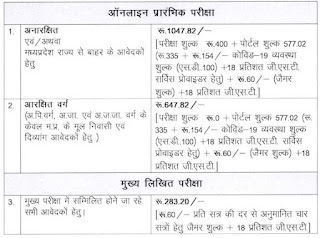 ऑनलाइन प्रारंभिक परीक्षा
1. अनारक्षित
एवं/अथवा
मध्यप्रदेश राज्य से बाहर के आवेदकों
हेतु
रू.1047.82/–
[परीक्षा शुल्क रू.400 + पोर्टल शुल्क 577.02
(रू.335 + रू.154/– कोविड–19 व्यवस्था
शुल्क (एस.डी.100) +18 प्रतिशत जी.एस.टी.
सर्विस प्रोवाइडर हेतु) + रू.60/– (जैमर
शुल्क) +18 प्रतिशत जी.एस.टी.]
2. आरक्षित वर्ग
(अ.पि.वर्ग, अ.जा. एवं अ.ज.जा. वर्ग के
केवल म.प्र. के मूल निवासी एवं
दिव्यांग आवेदकों हेतु )
रू.647.82/–
[परीक्षा शुल्क रू.0 + पोर्टल शुल्क 577.02 (रू.
335 + रू.154/– कोविड–19 व्यवस्था शुल्क
(एस.डी.100) +18 प्रतिशत जी.एस.टी. सर्विस
प्रोवाइडर हेतु) + रू.60/– (जैमर शुल्क) +18
प्रतिशत जी.एस.टी.]
मुख्य लिखित परीक्षा
3. मुख्य परीक्षा में सम्मिलित होने जा रहे
सभी आवेदकों हेतु।
रू.283.20/–
[रू.60/– प्रति सत्र की दर से अनुमानित चार
सत्रों हेतु जैमर शुल्क + 18 प्रतिशत जी.एस.टी.]